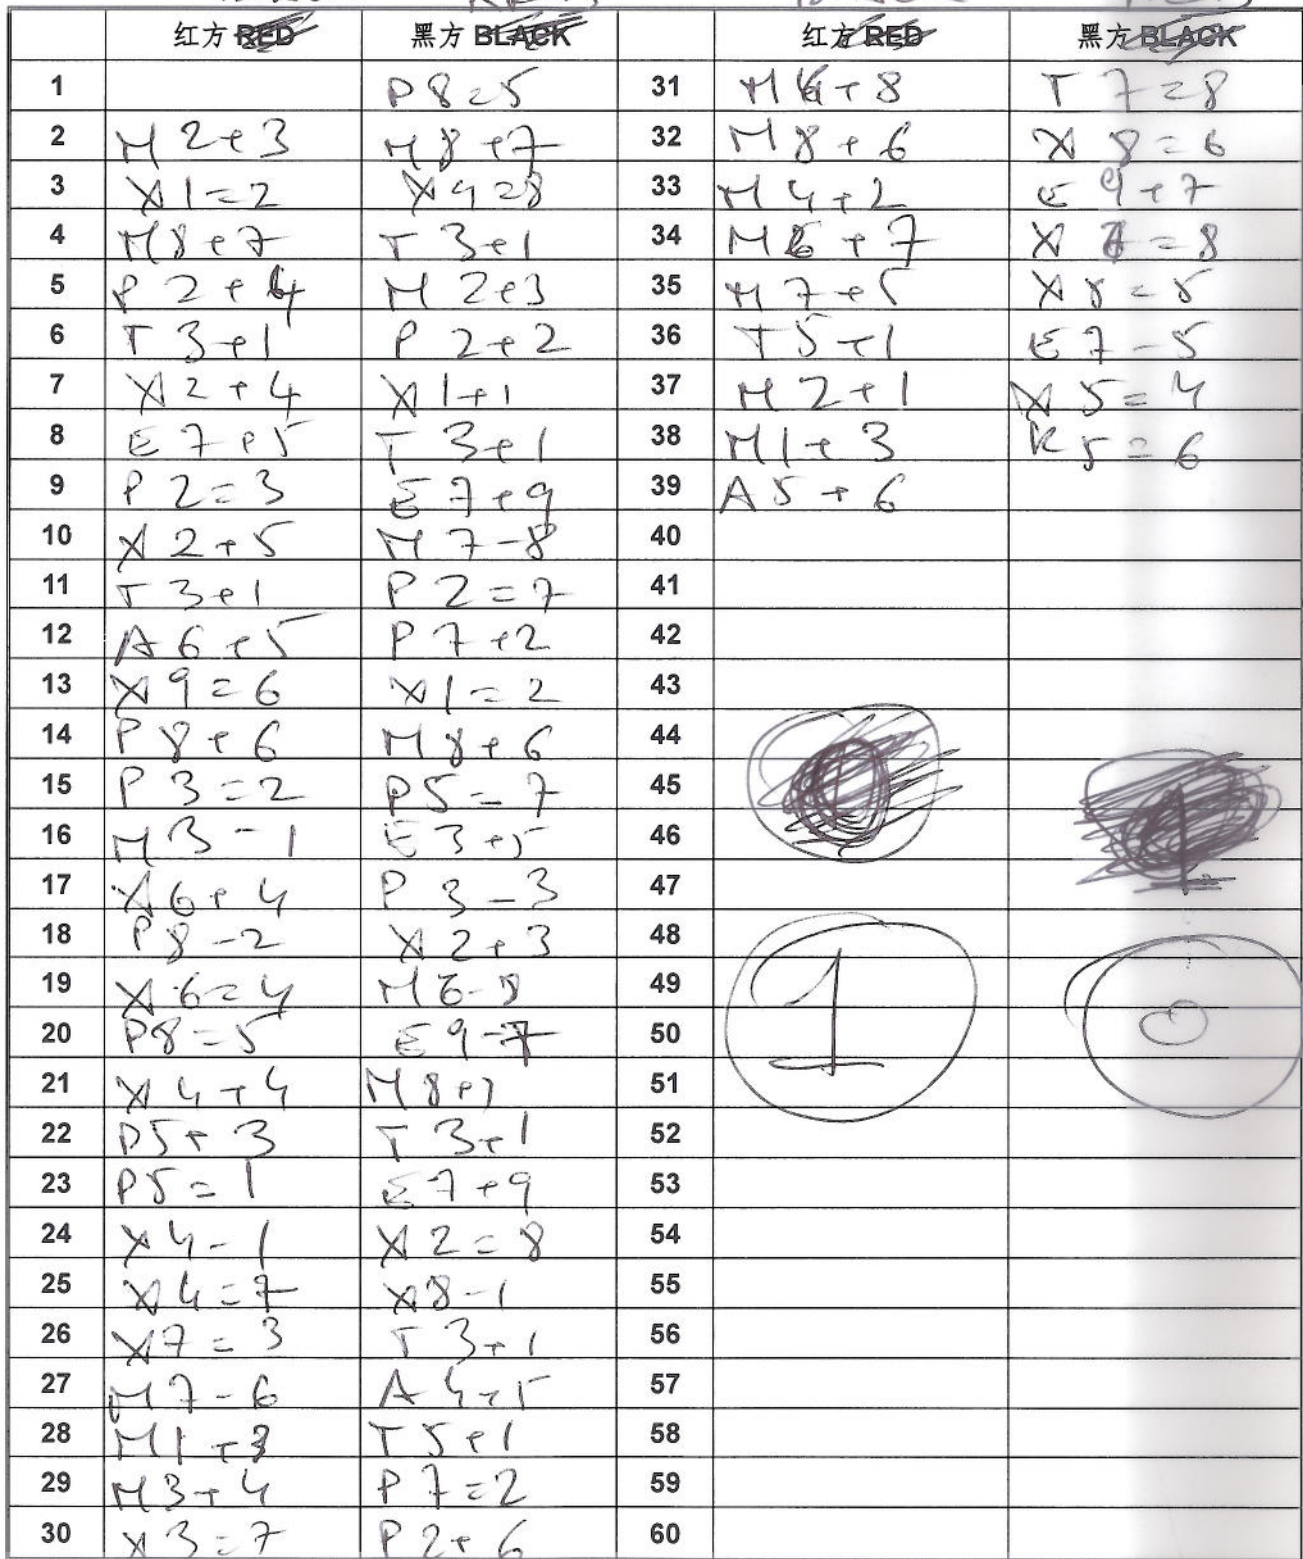 红方 RED 黑方 BLACK 红方 RED 黑方 BLACK
1 P8=5 31 M6+8 T7=8
2 M2+3 M8+7 32 M8+6 X8=6
3 X1=2 X9=8 33 M4+2 E9+7
4 M8+7 T3+1 34 M6+7 X6=8
5 P2+4 M2+3 35 M7+5 X8=5
6 T3+1 P2+2 36 T5+1 E7-5
7 X2+4 X1+1 37 M2+1 X5=4
8 E7+5 T3+1 38 M1+3 K5=6
9 P2=3 E7+9 39 A5+6
10 X2+5 M7-8 40
11 T3+1 P2=7 41
12 A6+5 P7+2 42
13 X9=6 X1=2 43
14 P8+6 M8+6 44
15 P3=2 P5-7 45
16 M3-1 E3+5 46
17 X6+4 P3-3 47
18 P8-2 X2+3 48
19 X6=4 M6-8 49
20 P8=5 E9-7 50 1 0
21 X4+4 M8+7 51
22 P5+3 T3+1 52
23 P5=1 E7+9 53
24 X4-1 X2=8 54
25 X4=7 X8-1 55
26 X7=3 T3+1 56
27 M7-6 A4+5 57
28 M1+3 T5+1 58
29 M3+4 P7=2 59
30 X3=7 P2+6 60